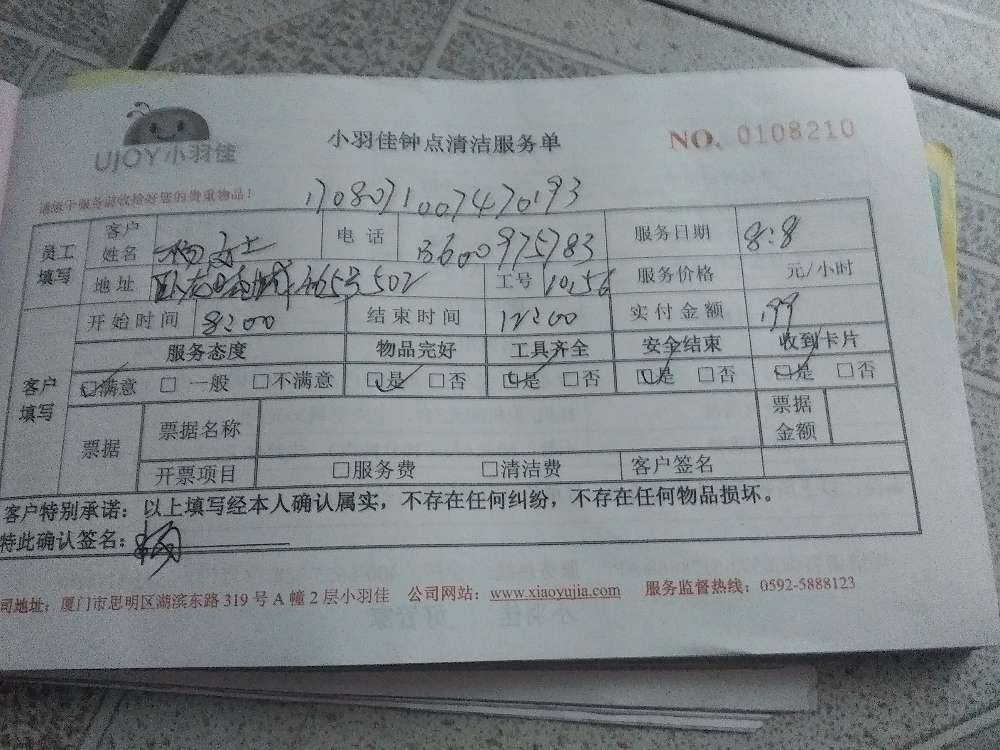 UJOY小羽佳
小羽佳钟点清洁服务单
NO. 0108210
请您于服务前收拾好您的贵重物品！
1708071007470193
员工填写 客户姓名 杨女士 电话 13600975783 服务日期 8:8
地址 465号502 工号 10156 服务价格 元/小时
客户填写 开始时间 8:00 结束时间 12:00 实付金额 199
服务态度 物品完好 工具齐全 安全结束 收到卡片
☑满意 □一般 □不满意 ☑是 □否 ☑是 □否 ☑是 □否 ☑是 □否
票据 票据名称 票据金额
开票项目 □服务费 □清洁费 客户签名
客户特别承诺：以上填写经本人确认属实，不存在任何纠纷，不存在任何物品损坏。
特此确认签名：杨
司地址：厦门市思明区湖滨东路 319 号 A 幢 2 层小羽佳 公司网站：www.xiaoyujia.com 服务监督热线：0592-5888123